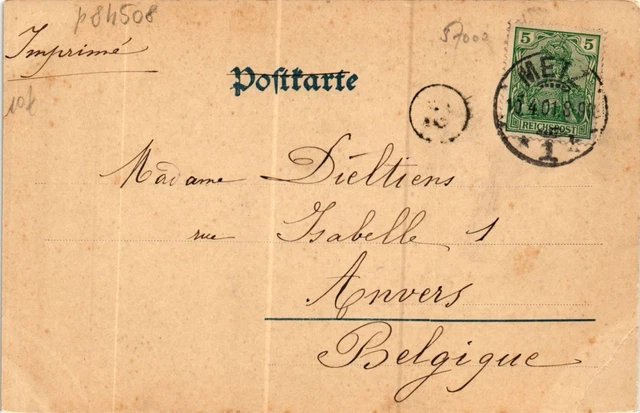 p84508
Imprimé
57000
Postkarte
5 5
REICHSPOST
METZ
10.4.01.8-9
1
Madame Dieltiens
rue Isabelle 1
Anvers
Belgique